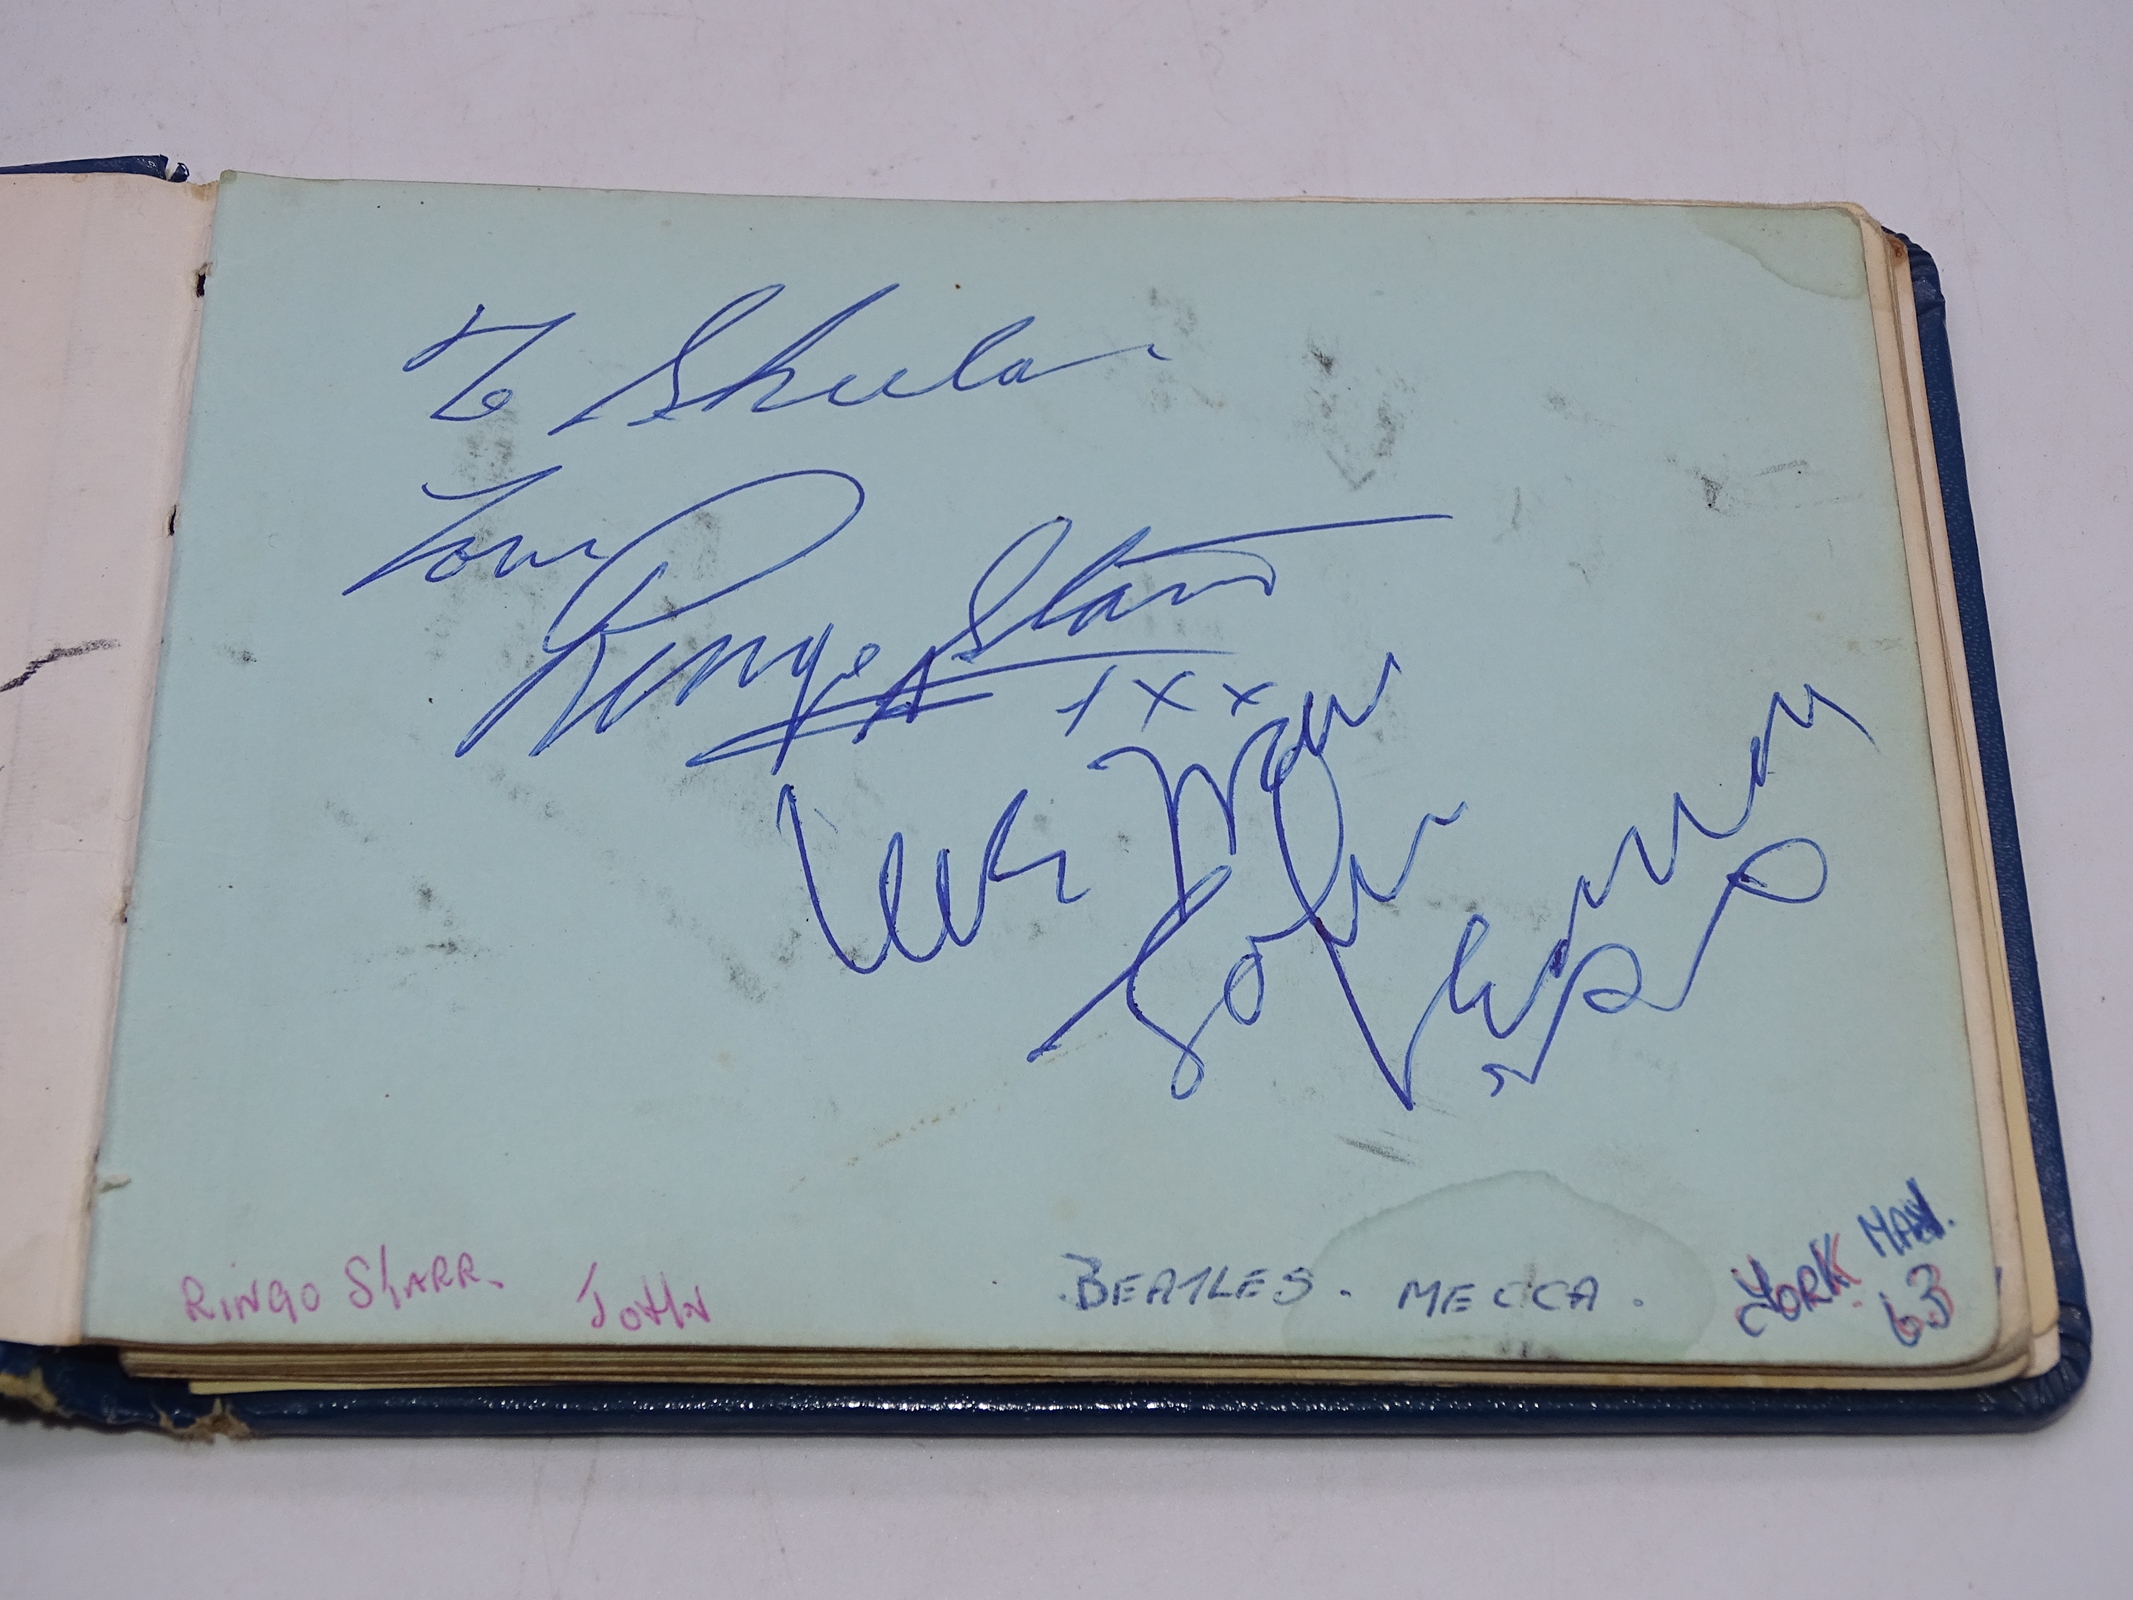 To Sheila
Love
Ringo Starr
xxx
love from
John Lennon
RINGO STARR
JOHN
BEATLES. MECCA.
YORK MAY.
63